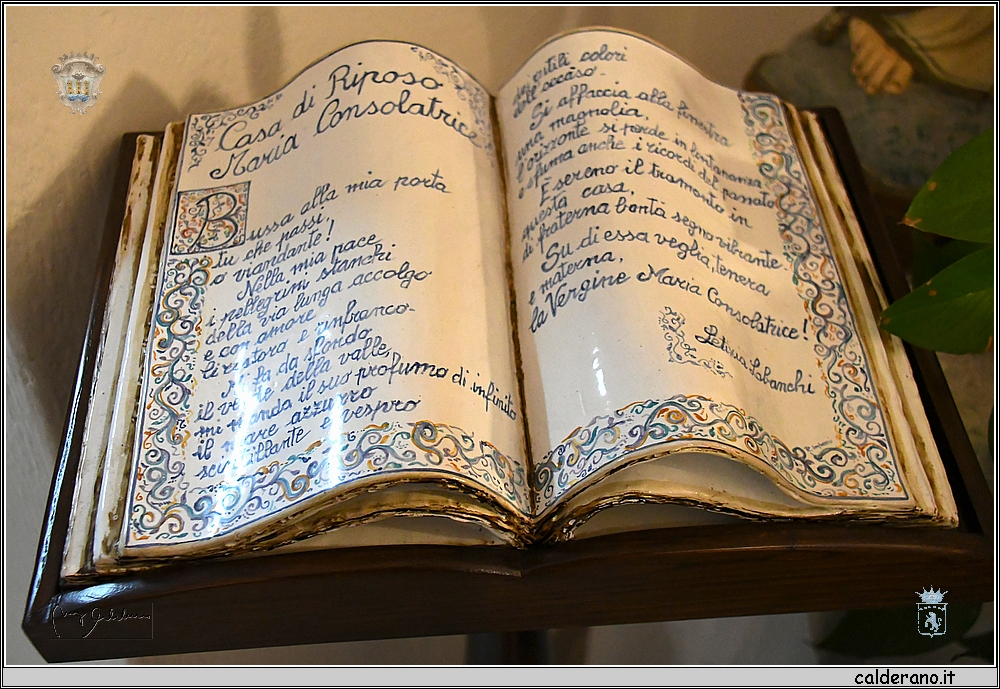 Casa di Riposo
Maria Consolatrice
Bussa alla mia porta
tu che passi,
o viandante!
Nella mia pace
i pellegrini stanchi
della via lunga accolgo
e con amore
li ristora e rinfranco.
Mi fa da sfondo
il verde della valle,
mi manda il suo profumo di infinito
il mare azzurro
scintillante e vespro
dai sottili colori
dell'occaso.
Si affaccia alla finestra
una magnolia,
l'orizzonte si perde in lontananza
e sfuma anche i ricordi del passato
È sereno il tramonto in
questa casa,
di fraterna bontà segno vibrante.
Su di essa veglia, tenera
e materna,
la Vergine Maria Consolatrice!
Letizia Labanchi
calderano.it